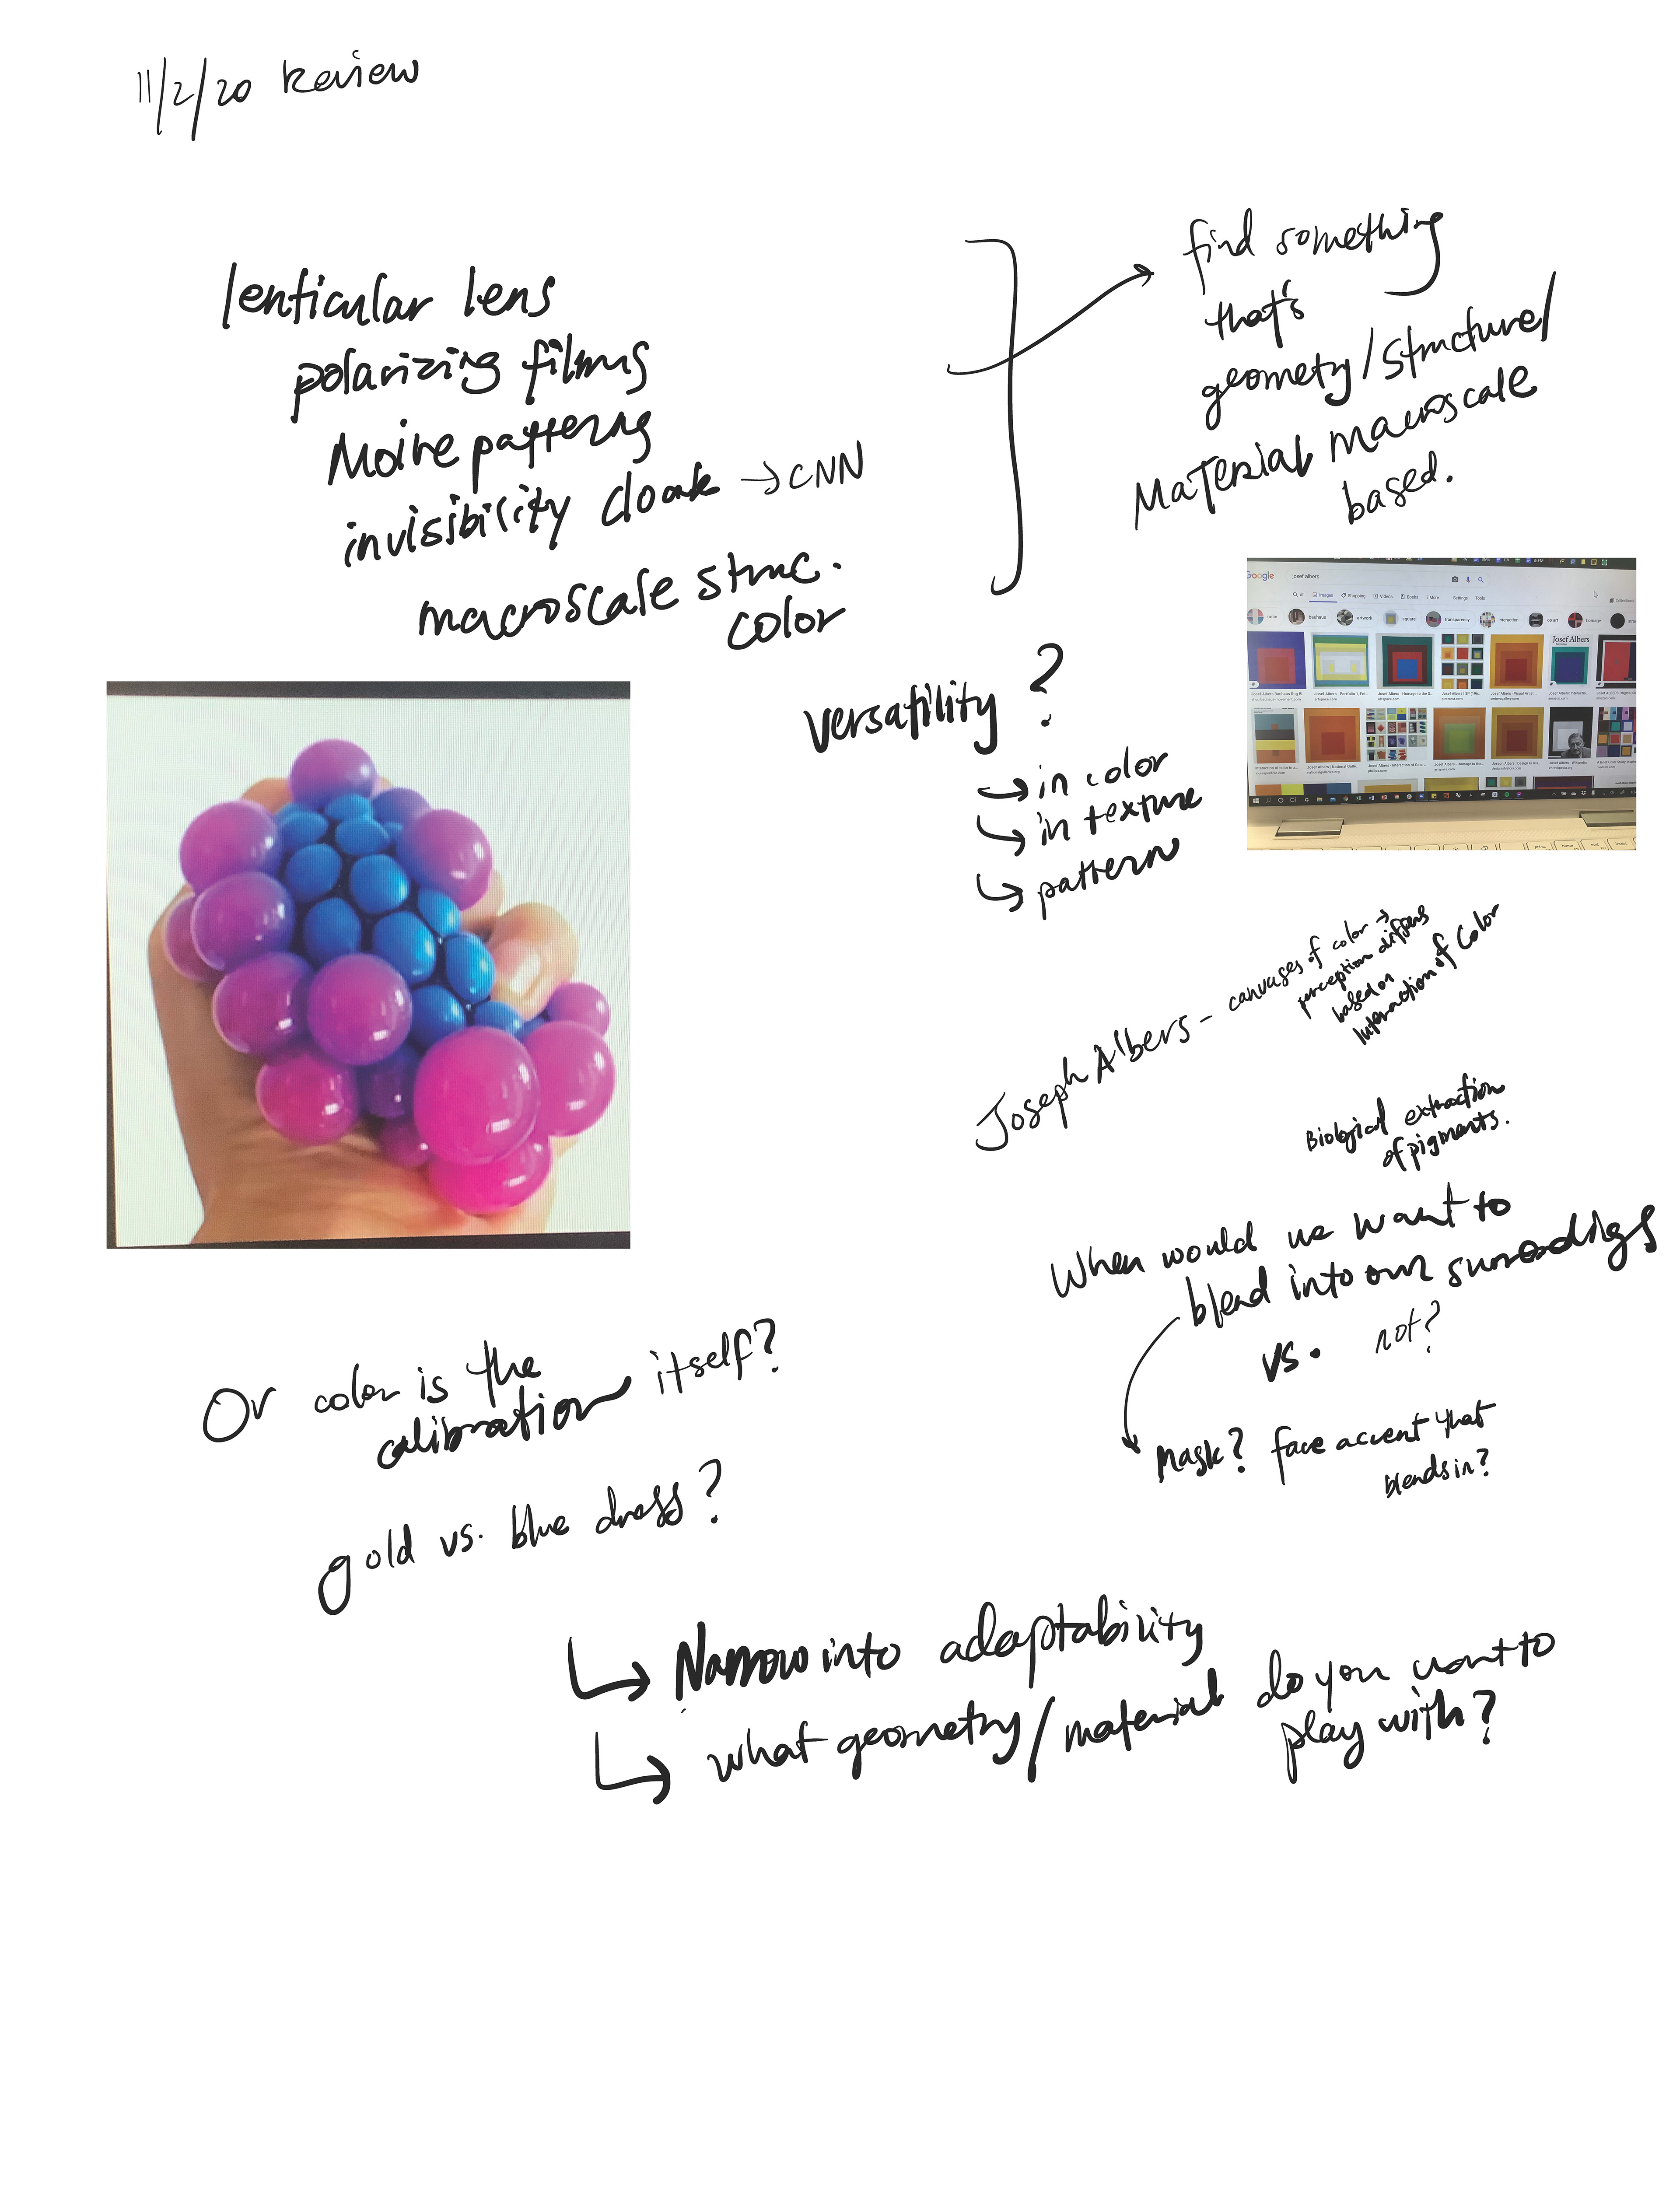 11/2/20 Review
lenticular lens
polarizing films
Moire patterns
invisibility cloak → CNN
macroscale struc.
color
find something
that's
geometry/structure/
Material macroscale
based.
Google
josef albers
All Images Shopping Videos Books More Settings Tools
color bauhaus artwork square transparency interaction op art homage
Josef Albers
versatility?
↳ in color
↳ in texture
↳ pattern
Joseph Albers - canvases of color →
perception differs
based on
Interaction of Color
Biological extraction
of pigments.
When would we want to
blend into our surroundings
vs. not?
Mask? face accent that
blends in?
Or color is the
calibration itself?
gold vs. blue dress?
↳ Narrow into adaptability
↳ what geometry/material do you want to
play with?